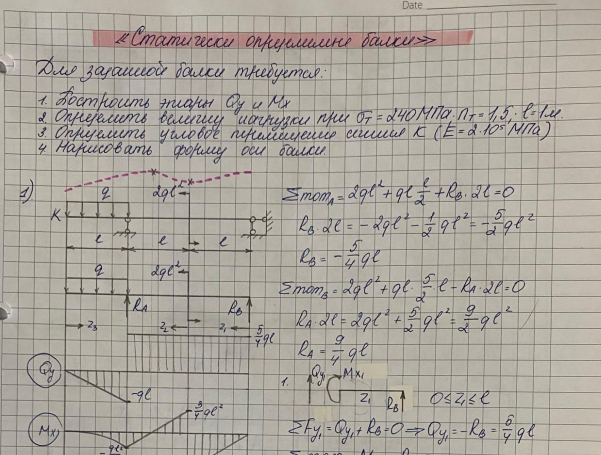 Date
«Статически определимые балки»
Для заданной балки требуется:
1. Построить эпюры Qy и Mx
2. Определить величину нагрузки при σт = 240МПа, nт = 1,5, l = 1м.
3. Определить угловое перемещение сечения K (E = 2·10⁵ МПа)
4. Нарисовать форму оси балки.
1)
q
2ql²
K
l
l
l
q
2ql²
RA
RB
z3
z2
z1
5/4 ql
Qy
-ql
3/4 ql²
Mx
Σmom A = 2ql² + ql l/2 + RB·2l = 0
RB·2l = -2ql² - 1/2 ql² = -5/2 ql²
RB = -5/4 ql
Σmom B = 2ql² + ql·5/2 l - RA·2l = 0
RA·2l = 2ql² + 5/2 ql² = 9/2 ql²
RA = 9/4 ql
1.
Qy1
Mx1
z1
RB
0≤z1≤l
ΣFy1 = Qy1 + RB = 0 ⇒ Qy1 = -RB = 5/4 ql